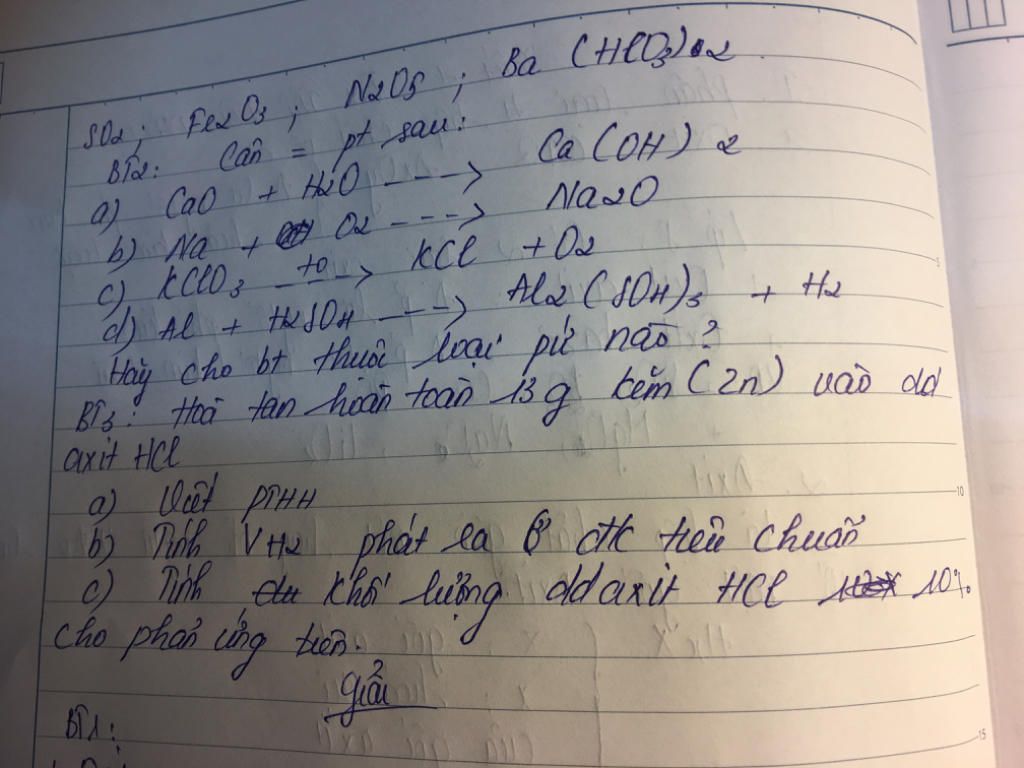 SO2; Fe2O3; N2O5; Ba (HCO3)2
BT2: Cân = pt sau:
a) CaO + H2O ---> Ca (OH) 2
b) Na + O2 ---> Na2O
c) KClO3 --to--> KCl + O2
d) Al + H2SO4 ---> Al2 (SO4)3 + H2
Hãy cho bt thuộc loại pứ nào?
BT3: Hoà tan hoàn toàn 13g kẽm (Zn) vào dd
axit HCl
a) Viết PTHH
b) Tính VH2 phát ra ở đk tiêu chuẩn
c) Tính khối lượng dd axit HCl 10%
cho phản ứng trên.
Giải
BT1: